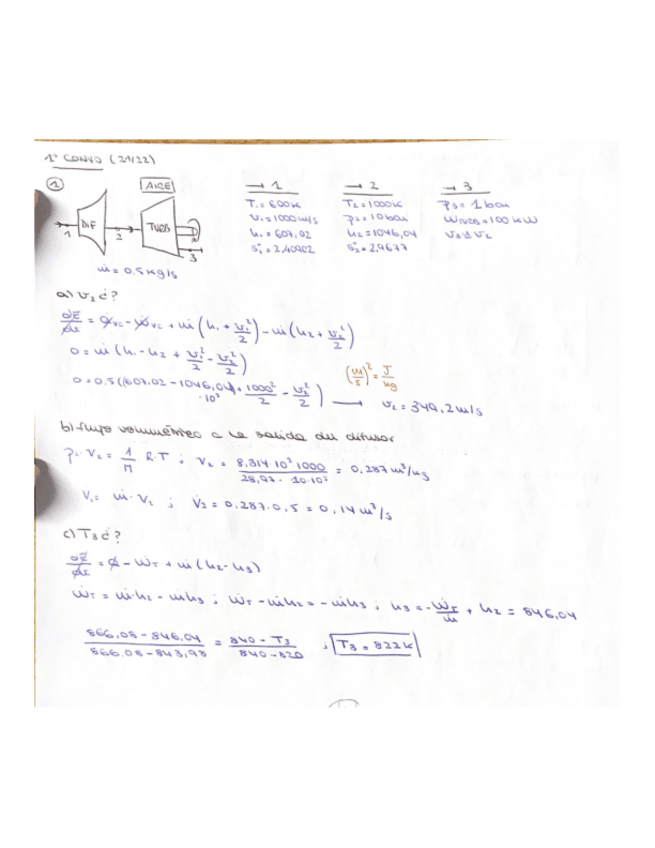 1ª CONVO (21/22)
① AIRE
DIF TURB
1 2 3
ṁ = 0.5 kg/s
→ 1
T₁ = 600K
v₁ = 1000 m/s
h₁ = 607,02
s₁° = 2,40902
→ 2
T₂ = 1000K
p₂ = 10 bar
h₂ = 1046,04
s₂° = 2,9677
→ 3
p₃ = 1 bar
ẆTURB = 100 KW
v₃ ≅ v₂
a) v₂ ¿?
dE/dt = Q̇vc - Ẇvc + ṁ (h₁ + v₁²/2) - ṁ (h₂ + v₂²/2)
0 = ṁ (h₁ - h₂ + v₁²/2 - v₂²/2)
0 = 0.5 ((607.02 - 1046,04)·10³ + 1000²/2 - v₂²/2) → v₂ = 349,2 m/s
(m/s)² = J/kg
b) flujo volumétrico a la salida del difusor
p · v₂ = 1/M R.T ; v₂ = 8.314·10³ 1000 / 28,97 · 10·10⁵ = 0,287 m³/kg
V̇₂ = ṁ · v₂ ; V̇₂ = 0.287 · 0,5 = 0,14 m³/s
c) T₃ ¿?
dE/dt = Q̇ - ẆT + ṁ (h₂ - h₃)
ẆT = ṁ·h₂ - ṁh₃ ; ẆT - ṁh₂ = - ṁh₃ ; h₃ = -ẆT/ṁ + h₂ = 846,04
866,08 - 846,04 / 866,08 - 843,98 = 840 - T₃ / 840 - 820 ; T₃ = 822K